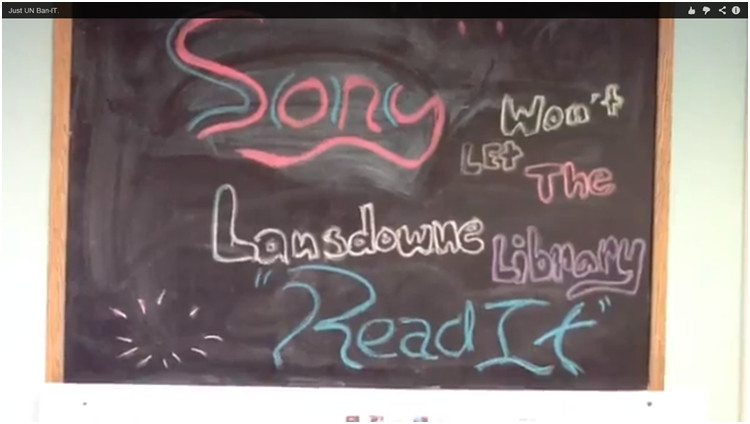 Just UN Ban-IT.
Sony
Won't
LEt The
Lansdowne Library
"Read It"